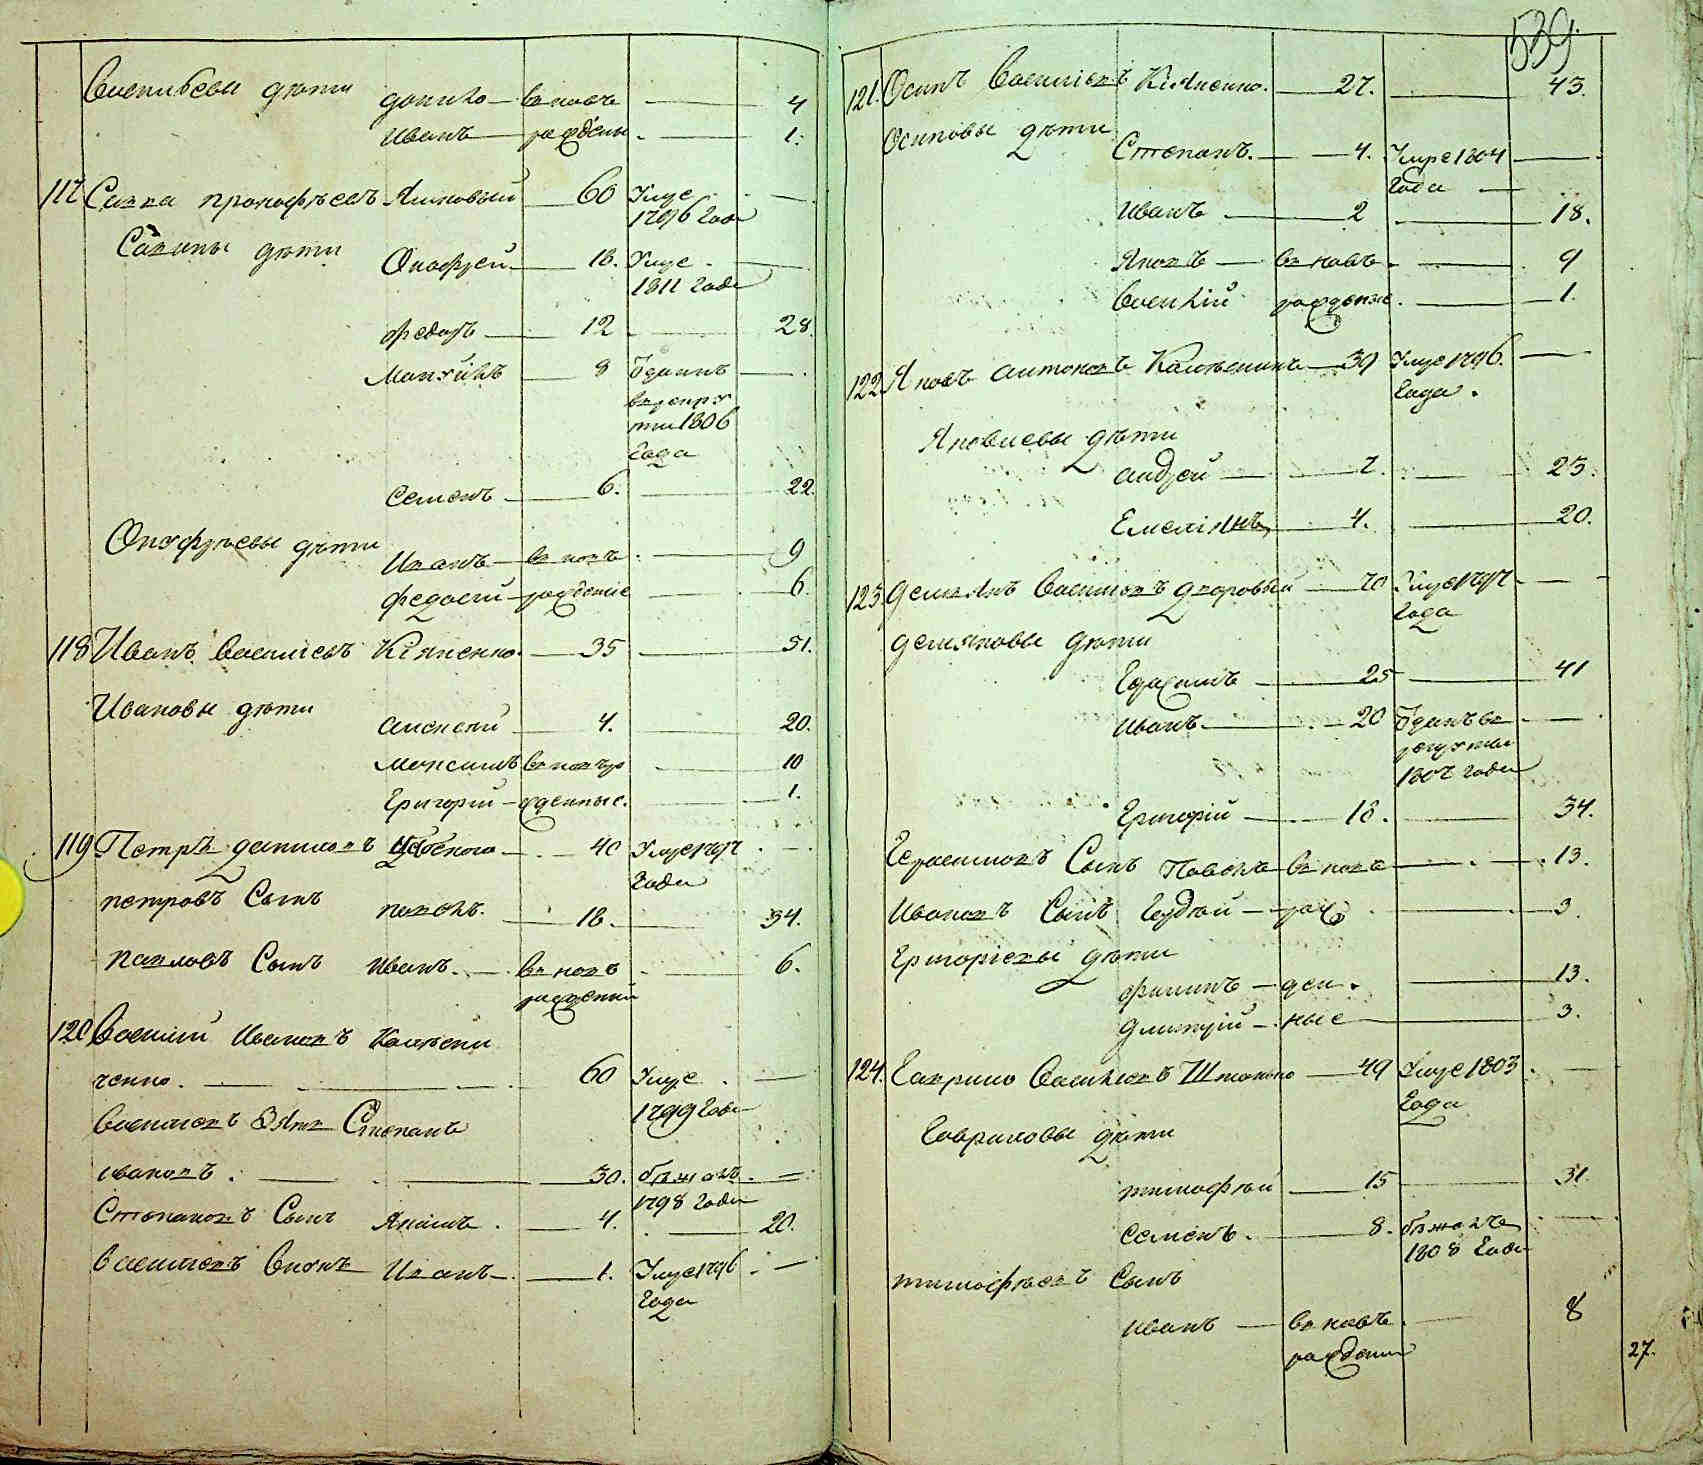 Васильевы дѣти данило — вновь — 4
Иванъ — рожден. — 1.
117 Савва прокофьевъ Яшковый — 60 Умре —
1796 Года
Савины дѣти
Онофрей — 18. Умре. —
1811 Года
Федоръ — 12 — 28.
Мануйлъ — 8 Отданъ —
в рекру
ты 1806
Года
Семенъ — 6. — 22.
Онуфрѣевы дѣти
Иванъ — вновь — 9
Федосей — рождение — 6.
118 Иванъ Васильевъ Кіяненко — 35 — 51.
Ивановы дѣти
Алексей — 4. — 20.
Максимъ вновь ро — 10
Григорій — жденные. — 1.
119 Петръ даниловъ — 40 Умре 1797 —
Года
петровъ Сынъ
павелъ. — 18. — 34.
павловъ Сынъ Иванъ. — вновь — 6.
рожденны
120 Василий Ивановъ Калѣсни
ченко. — 60 Умре. —
1799 Года
Васильевъ Зять Степанъ
ивановъ. — 30. бѣжалъ. —
1798 Года
Степановъ Сынъ Якимъ. — 4. — 20.
Васильевъ Внукъ Иванъ — 1. Умре 1796 —
Года
539.
121. Осипъ Васильевъ Кіяненко. — 27. — 43.
Осиповы дѣти
Степанъ. — 4. Умре 1804 —
Года —
Иванъ — 2 — 18.
Яковъ — вновь — 9
Василій рожденые. — 1.
122. Яковъ антоновъ — 39 Умре 1796. —
Года.
Яковлевы дѣти
андрей — 7. — 23.
Емеліянъ — 4. — 20.
123. Демьянъ Васильевъ дворовый — 70 Умре 1797 —
Года
демяновы дѣти
Герасимъ — 25 — 41
Иванъ. — 20 Отданъ в —
рекруты
1807 Года
Григорій — 18. — 34.
Герасимовъ Сынъ Павелъ — вновь — 13.
Ивановъ Сынъ Гордѣй — рож — 3.
Григорьевы дѣти
филипъ — ден. — 13.
Дмитрій — ные — 3.
124. Гаврило Васильевъ — 49 Умре 1803. —
Года
Гавриловы дѣти
тимофѣй — 15 — 31.
Семенъ. — 8. бѣжалъ —
1808 Года
тимофѣевъ Сынъ
Иванъ — вновь. — 8
рождены
27.